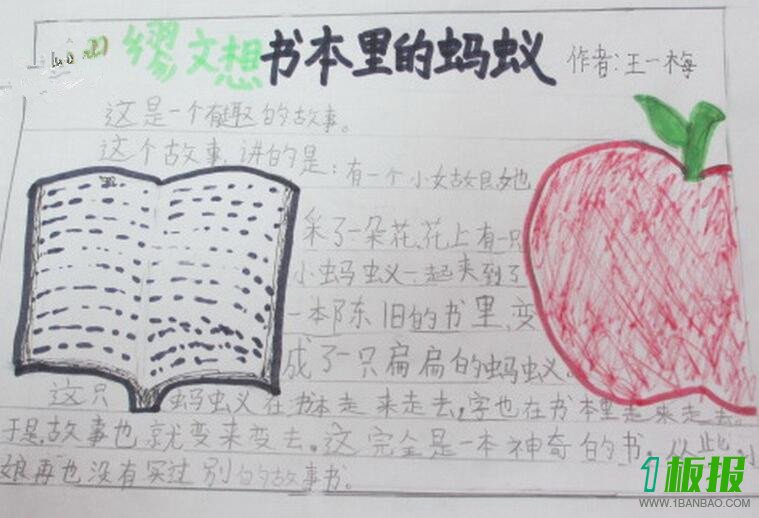 缪文想 书本里的蚂蚁 作者:王一梅
这是一个有趣的故事。
这个故事,讲的是:有一个小女故良她
采了一朵花,花上有一只
小蚂蚁一起夹到了
一本陈旧的书里,变
成了一只扁扁的蚂蚁。
这只蚂蚁在书本走来走去,字也在书本里走来走去。
于是,故事也就变来变去。这完全是一本神奇的书,从此,小
娘再也没有买过别的故事书。
1板报
WWW.1BANBAO.COM